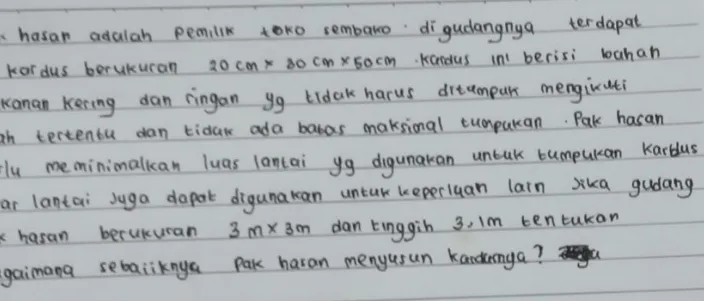 hasan adalah Pemilik toko sembako. di gudangnya terdapat
kardus berukuran 20 cm x 80 cm x 50 cm. kardus ini berisi bahan
kanan kering dan ringan yg tidak harus ditumpuk mengikuti
ah tertentu dan tidak ada batas maksimal tumpukan. Pak hasan
lu meminimalkan luas lantai yg digunakan untuk tumpukan kardus
ar lantai juga dapat digunakan untuk keperluan lain jika gudang
k hasan berukuran 3 m x 3m dan tinggih 3,1m tentukan
gaimana sebaiiknya Pak hasan menyusun kardusnya?